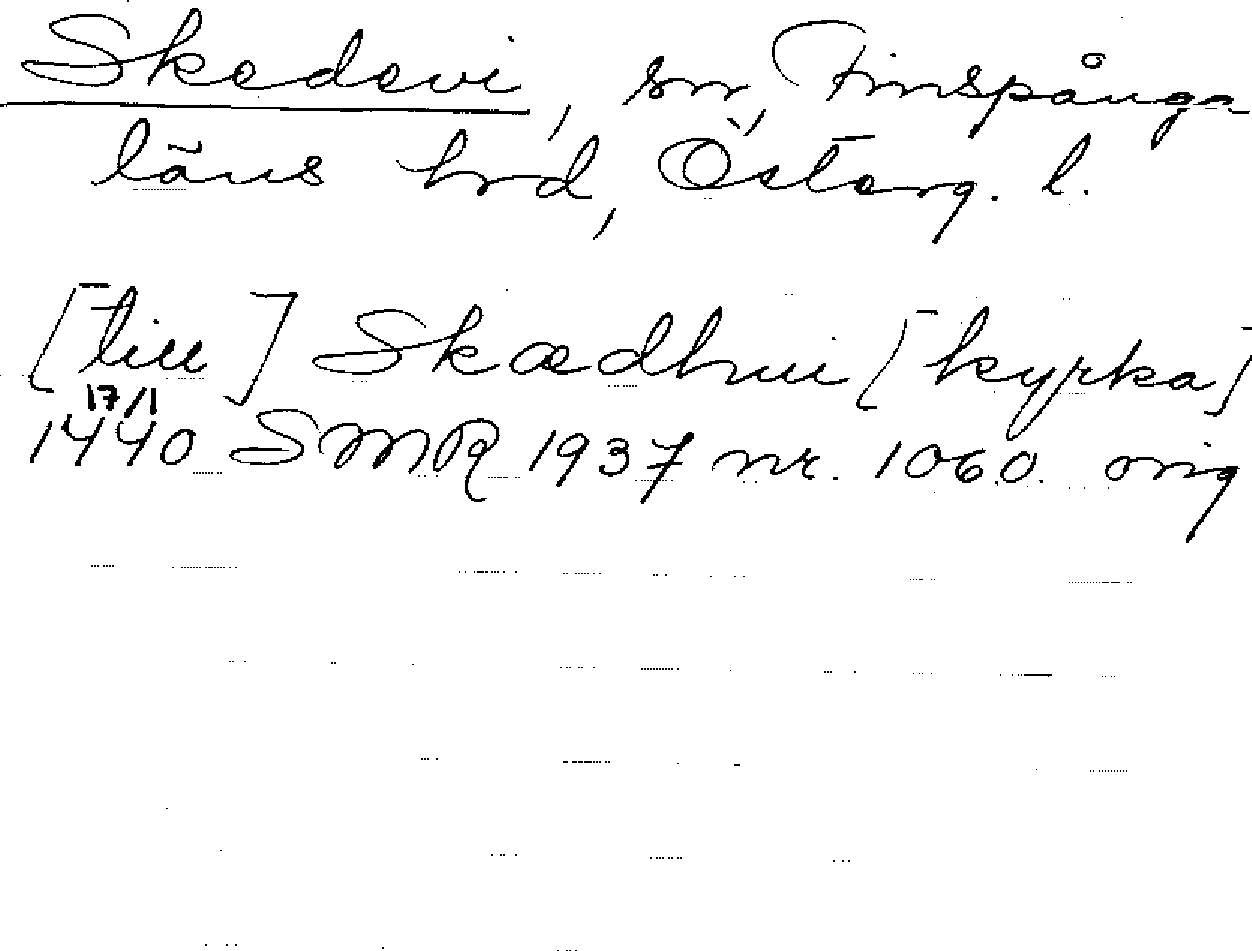 Skedevi, sn, Finspånga-
läns hrd, Österg. l.
[till] Skædhwi [kyrka]
17/1
1440 SMR 1937 nr. 1060. orig